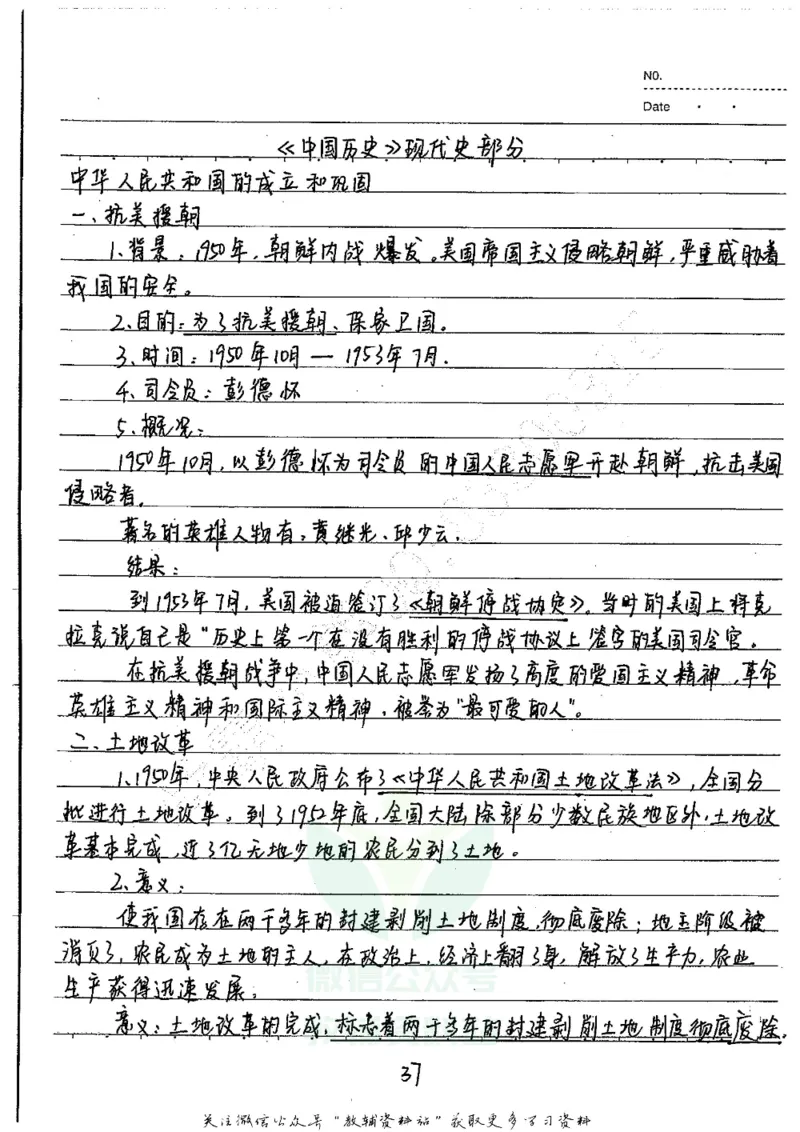 NO.
Date
《中国历史》现代史部分
中华人民共和国的成立和巩固
一、抗美援朝
1、背景：1950年，朝鲜内战爆发。美国帝国主义侵略朝鲜，严重威胁着
我国的安全。
2、目的：为了抗美援朝、保家卫国。
3、时间：1950年10月—1953年7月.
4、司令员：彭德怀
5、概况：
1950年10月，以彭德怀为司令员的中国人民志愿军开赴朝鲜，抗击美国
侵略者，
著名的英雄人物有：黄继光、邱少云.
结果：
到1953年7月，美国被迫签订了《朝鲜停战协定》。当时的美国上将克
拉克说自己是"历史上第一个在没有胜利的停战协议上签字的美国司令官。
在抗美援朝战争中，中国人民志愿军发扬了高度的爱国主义精神，革命
英雄主义精神和国际主义精神，被誉为"最可爱的人"。
二、土地改革
1、1950年，中央人民政府公布了《中华人民共和国土地改革法》，全国分
批进行土地改革。到了1952年底，全国大陆除部分少数民族地区外，土地改
革基本完成，近3亿无地少地的农民分到了土地。
2、意义：
使我国存在两千多年的封建剥削土地制度，彻底废除；地主阶级被
消灭了，农民成为土地的主人，在政治上，经济上翻了身，解放了生产力，农业
生产获得迅速发展，
意义：土地改革的完成，标志着两千多年的封建剥削土地制度彻底废除.
微信公众号
37
关注微信公众号"教辅资料站"获取更多学习资料